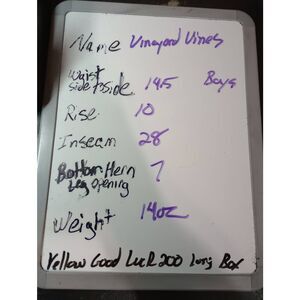 Name Vineyard Vines
Waist
side to side 14.5 Boys
Rise 10
Inseam 28
Bottom Hem 7
Leg opening
Weight 14oz
Yellow Good LucR 200 Long Box